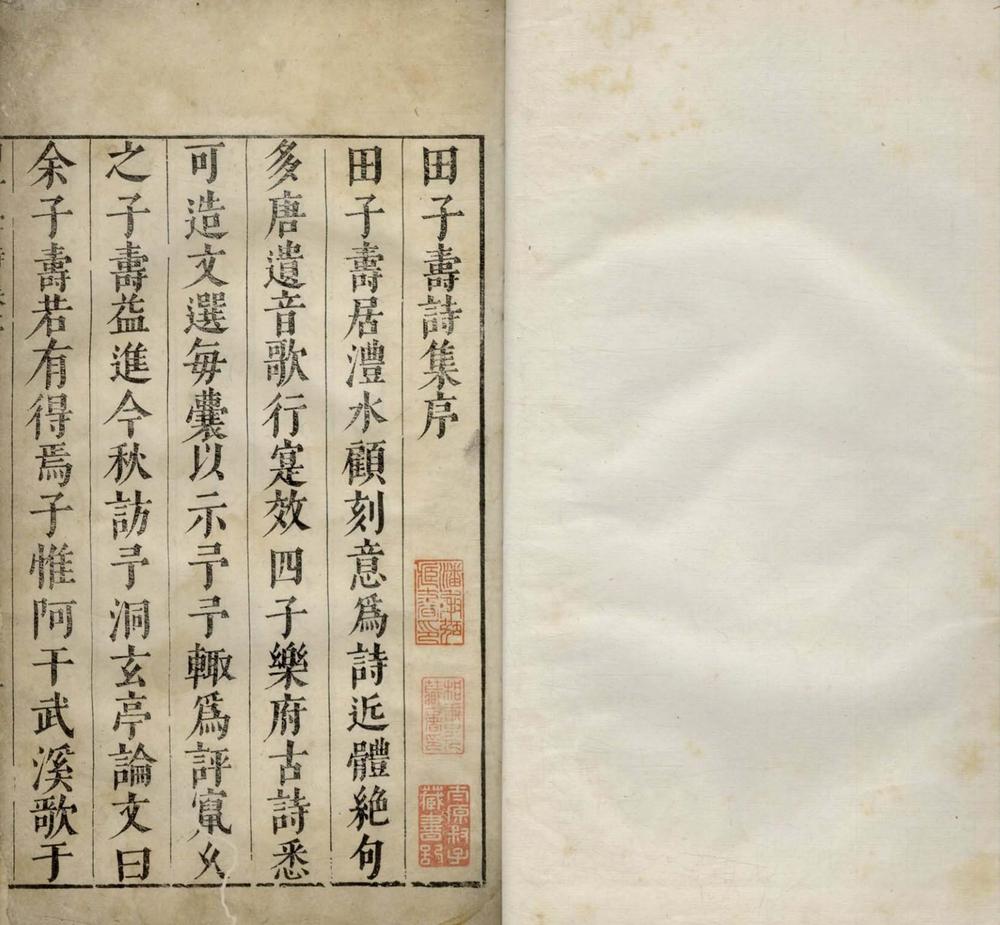 田子壽詩集序
田子壽居澧水顧刻意爲詩近體絶句
多唐遺音歌行寔效四子樂府古詩悉
可造文選每囊以示予予輙爲評竄久
之子壽益進今秋訪予洞玄亭論文曰
余子壽若有得焉子惟阿干武溪歌于
藏書